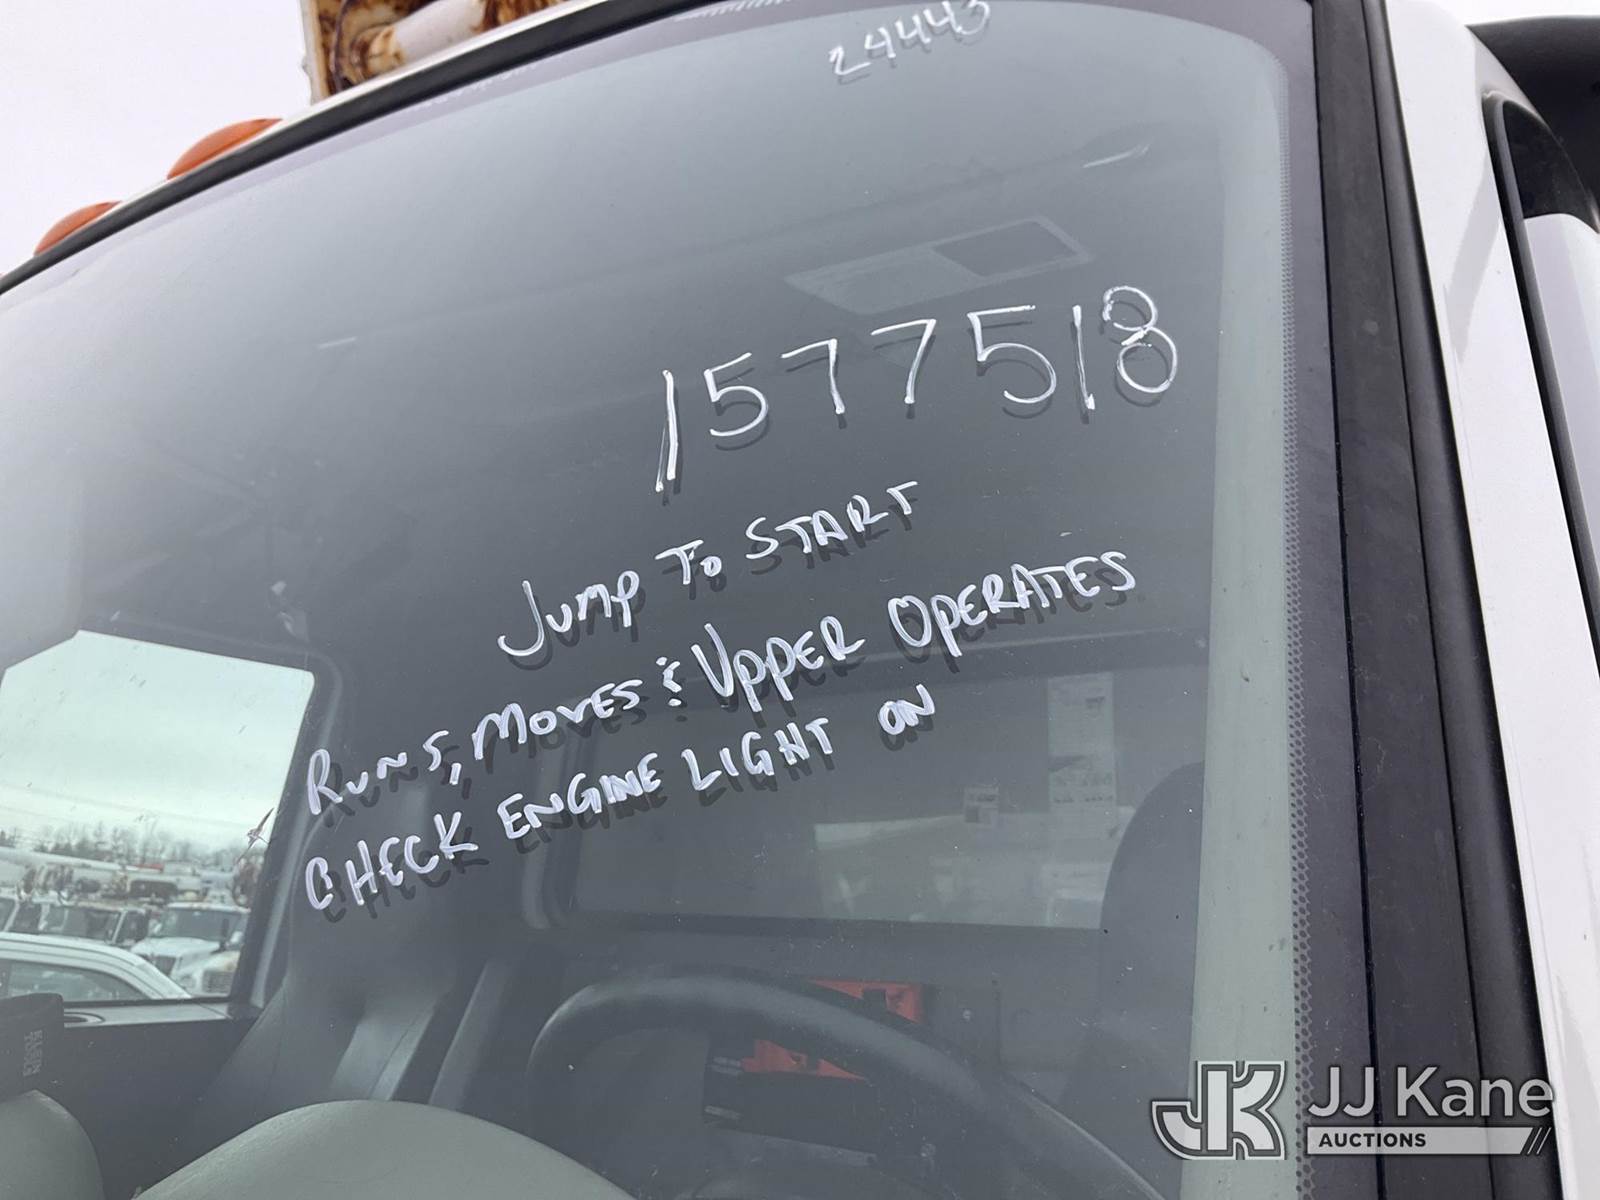 24443
1577518
JUMP TO START
RUNS, MOVES & UPPER OPERATES
CHECK ENGINE LIGHT ON
JK JJ Kane
AUCTIONS